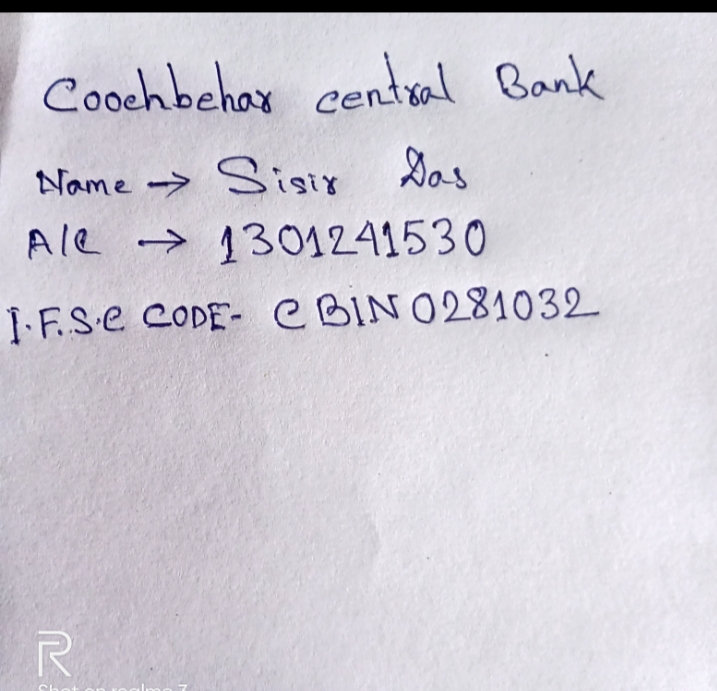 Coochbehar central Bank
Name → Sisir Das
A/C → 1301241530
I.F.S.C CODE- CBIN0281032
R
Shot on realme 7